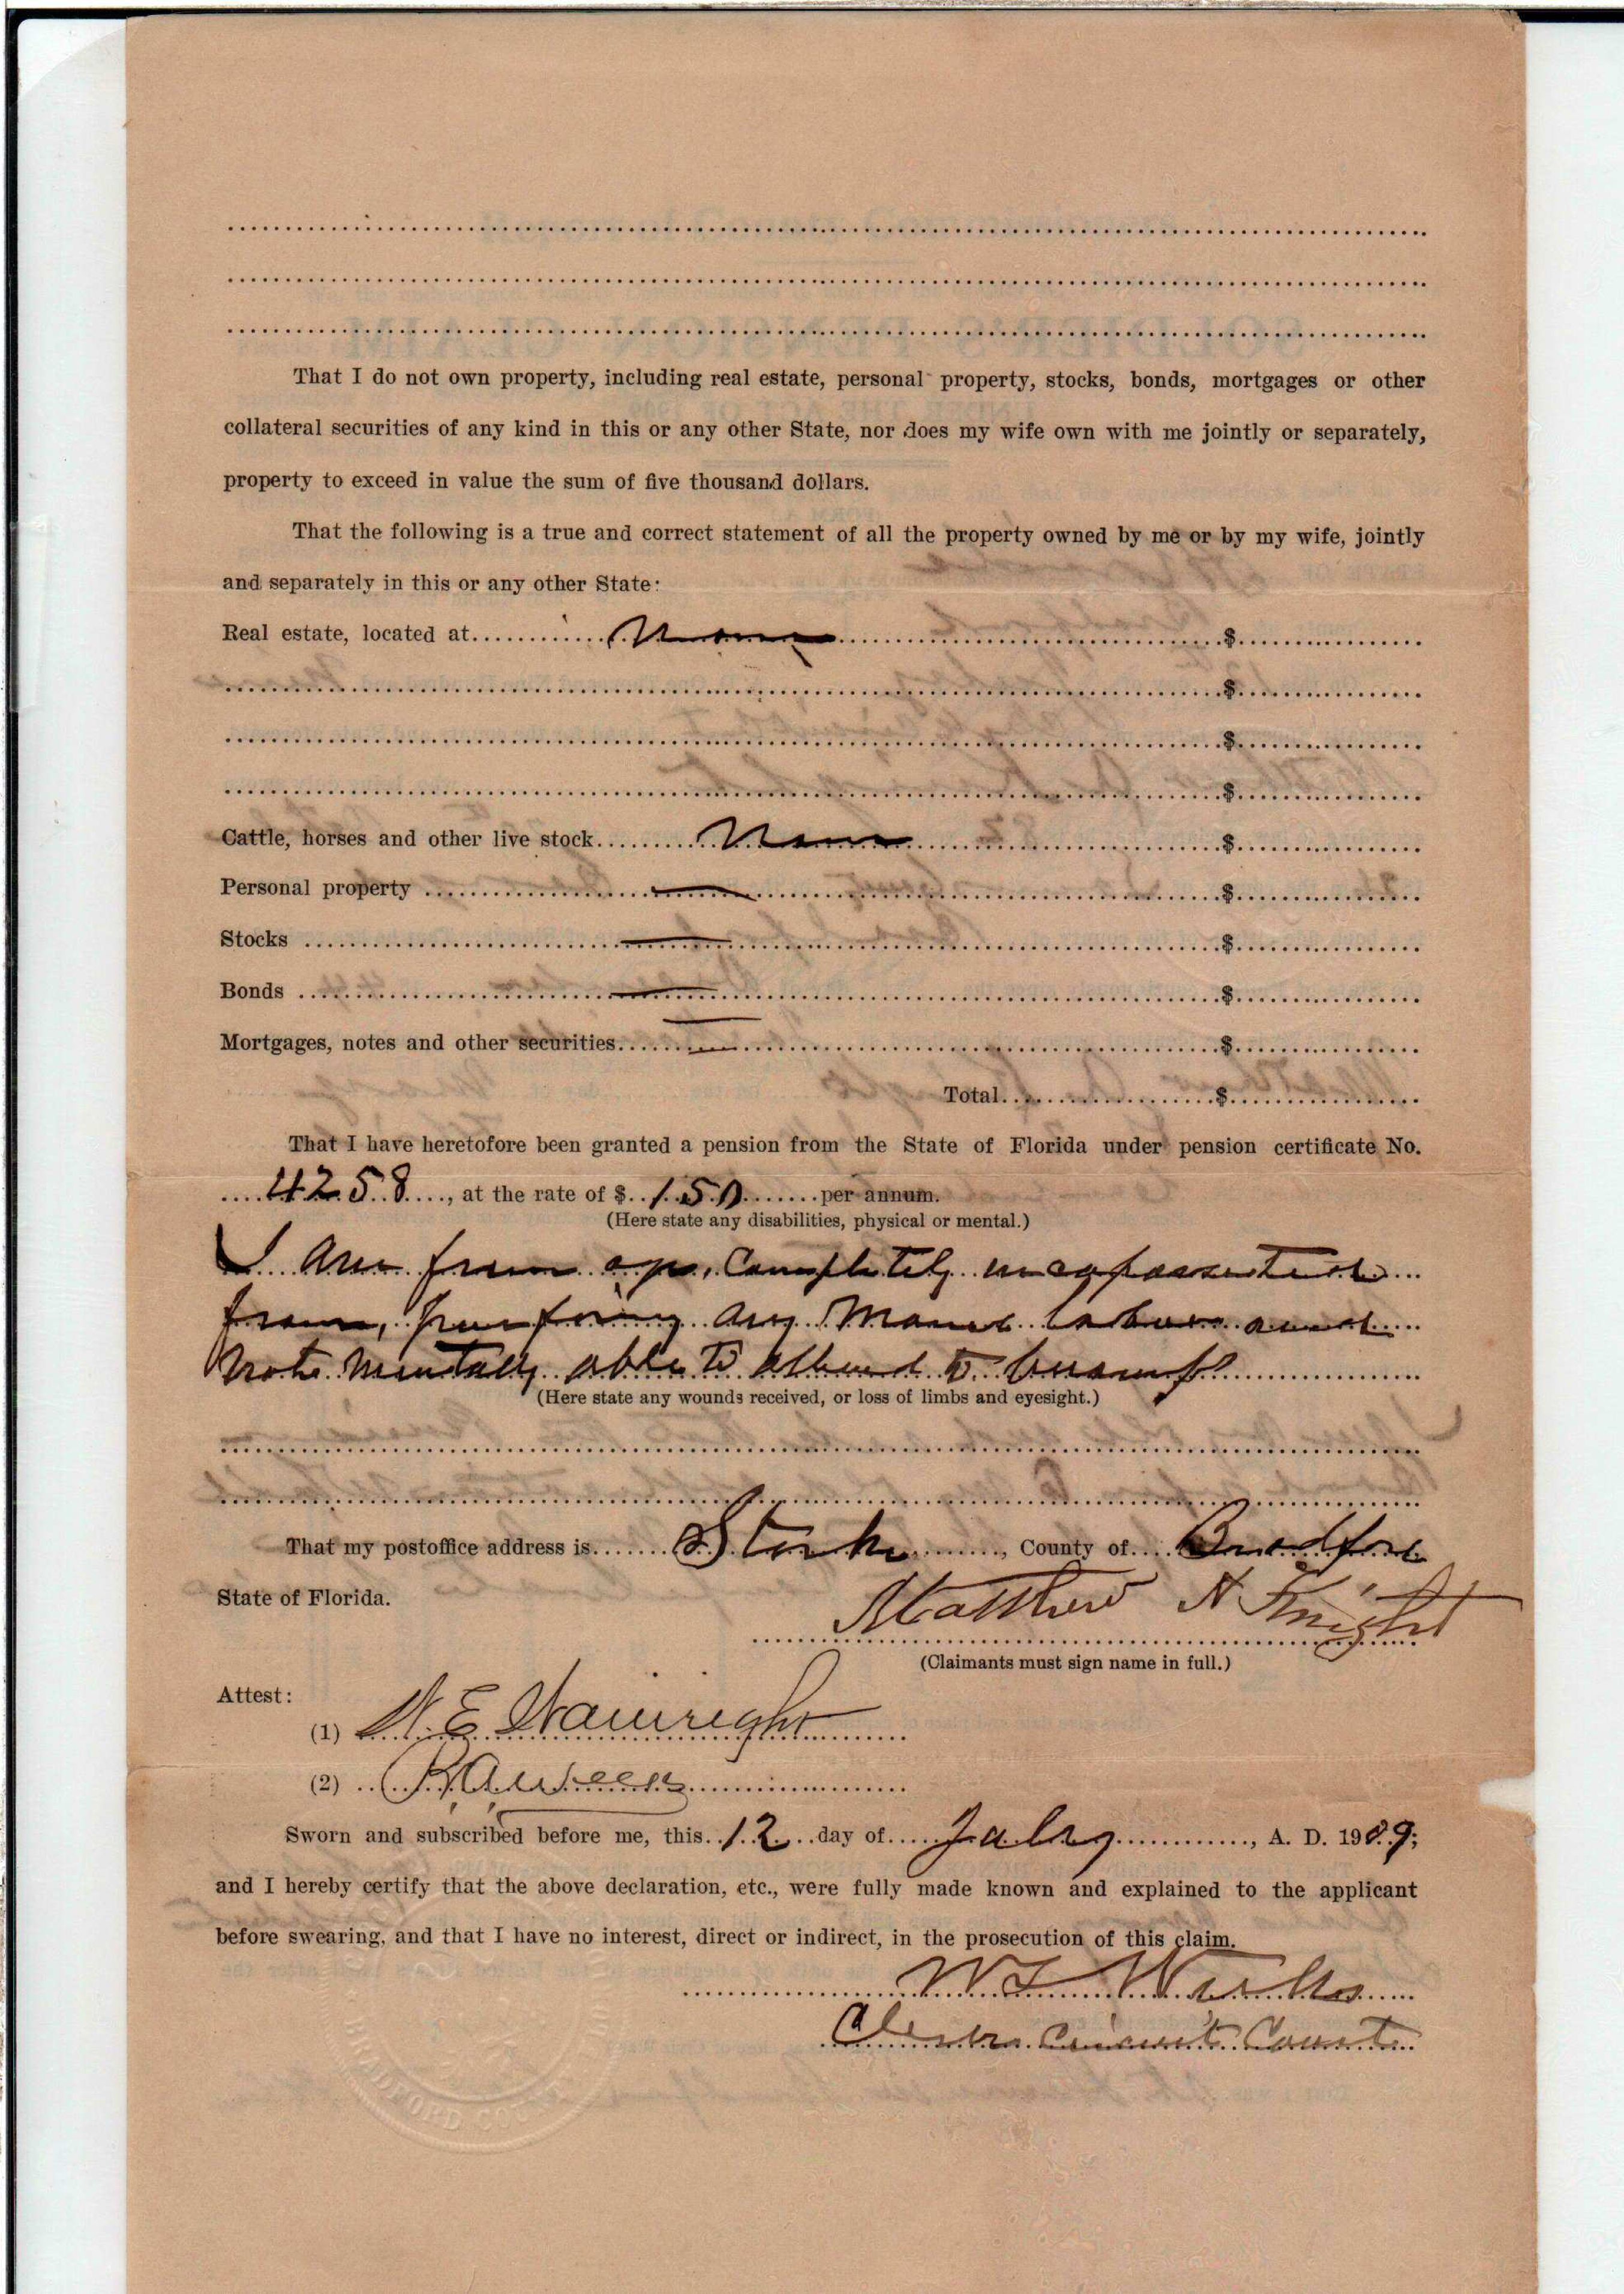 That I do not own property, including real estate, personal property, stocks, bonds, mortgages or other
collateral securities of any kind in this or any other State, nor does my wife own with me jointly or separately,
property to exceed in value the sum of five thousand dollars.
That the following is a true and correct statement of all the property owned by me or by my wife, jointly
and separately in this or any other State:
Real estate, located at None $
$
$
$
Cattle, horses and other live stock None $
Personal property — $
Stocks — $
Bonds — $
Mortgages, notes and other securities — $
Total $
That I have heretofore been granted a pension from the State of Florida under pension certificate No.
4258, at the rate of $ 150 per annum.
(Here state any disabilities, physical or mental.)
I am from age, Completely
from, any labour and
not mentally able to attend to
(Here state any wounds received, or loss of limbs and eyesight.)
That my postoffice address is Starke, County of Bradford
State of Florida.
Matthew A Knight
(Claimants must sign name in full.)
Attest:
(1) N. E. Wainright
(2) R.A. Weeks
Sworn and subscribed before me, this 12 day of July, A. D. 1909;
and I hereby certify that the above declaration, etc., were fully made known and explained to the applicant
before swearing, and that I have no interest, direct or indirect, in the prosecution of this claim.
Circuit Court
BRADFORD COUNTY